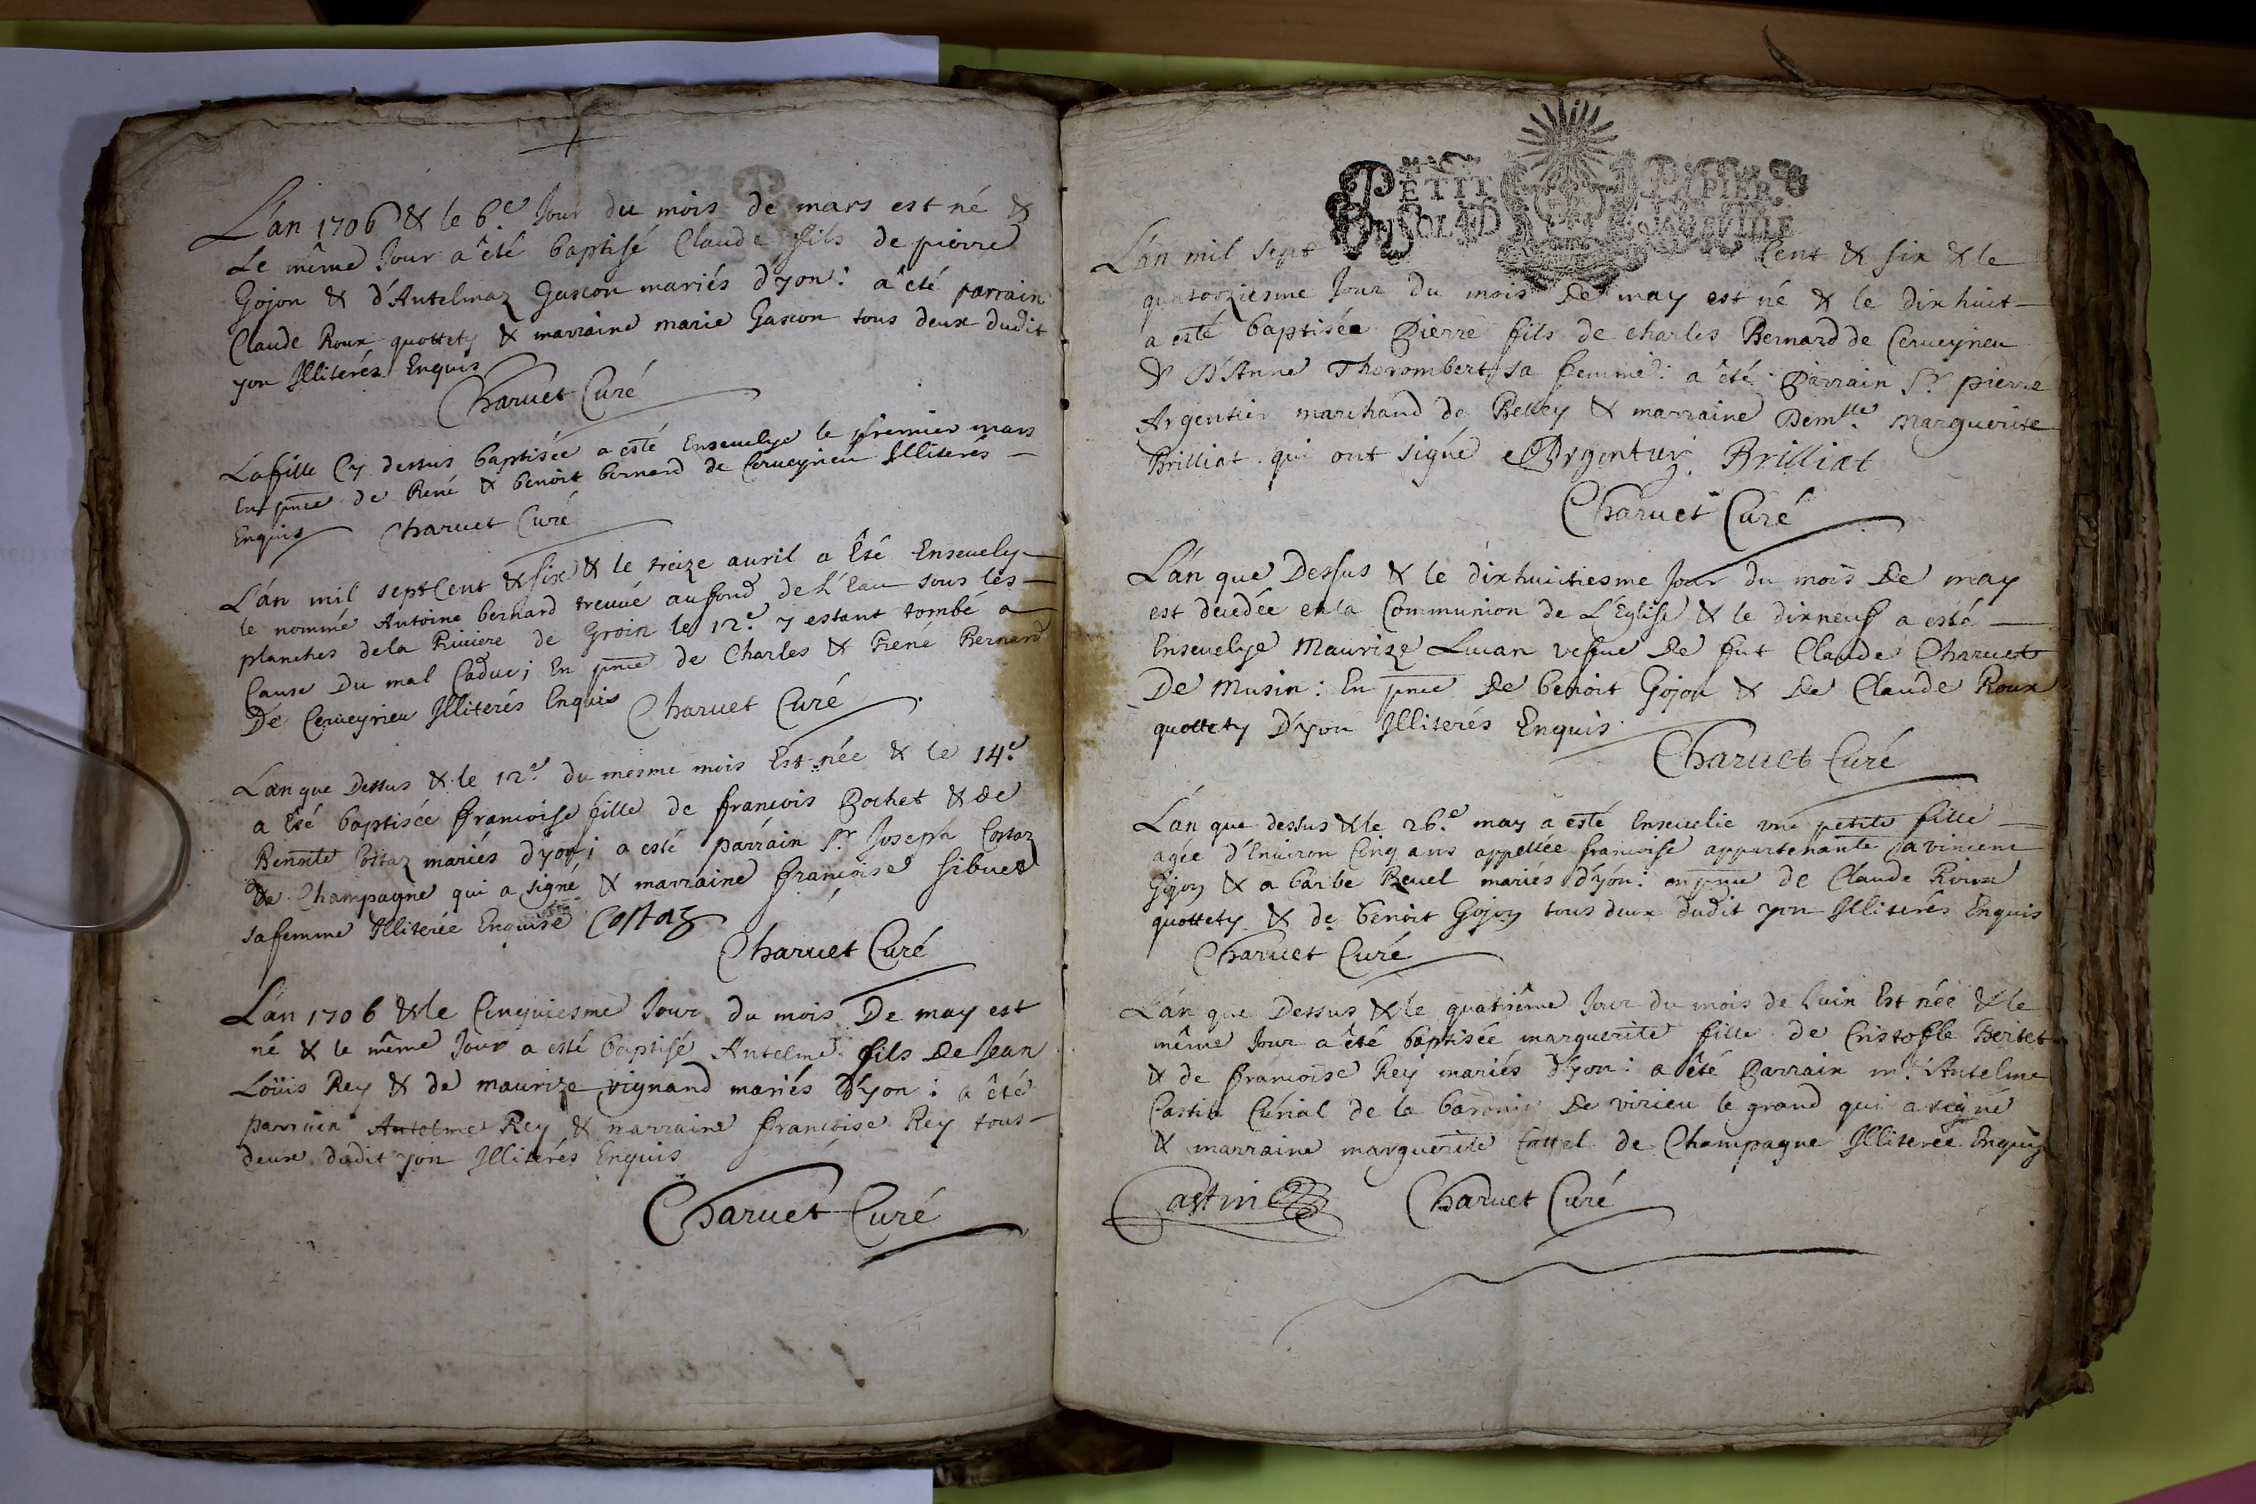 L'an 1706 & le 6e. Jour du mois de mars est né &
Le même Jour a êté baptisé Claude fils de pierre
Gojon & d'Antelmaz Gascon mariés d'yon: a êté parrain
Claude Roux quottety & marraine marie Gascon tous deux dudit
yon Illiterés Enquis
Charuet Curé
La fille Cy dessus baptisée a esté Enseuelye le premier mars
En pnce de René & benoit bernard de Cerueyrieu Illiterés
Enquis Charuet Curé
L'an mil sept Cent & six & le treize auril a Êté Enseuely
le nommé Antoine bernard treuué au fond de L'Eau sous les
planches de la Riuiere de Groin le 12e. y estant tombé a
Cause Du mal Caduc; En pnce de Charles & René Bernard
De Cerueyrieu Illiterés Enquis Charuet Curé
L'an que Dessus & le 12e. du mesme mois Est née & le 14e
a Êté baptisée francoise fille de francois Bochet & de
Benoite Costaz mariés d'yon; a esté parrain Sr. Joseph Costaz
de Champagne qui a signé & marraine francoise Sibuet
sa femme Illiterée Enquise Costaz
Charuet Curé
L'an 1706 & le Cinquiesme Jour du mois De may est
né & le même Jour a esté baptisé Antelme fils de Jean
Loüis Rey & de maurize vignand mariés D'yon: a êté
parrain Antelme Rey & marraine francoise Rey tous
deux dudit yon Illiterés Enquis
Charuet Curé
PETIT PAPIER
L'an mil sept Cent & six & le
quatorziesme Jour du mois de may est né & le dixhuit
a esté baptisée Pierre fils de charles Bernard de Cerueyrieu
& D'Anne Thorombert sa femme: a êté Parrain Sr. pierre
Argentier marchand de Belley & marraine Demlle. marguerite
Brilliat qui ont signé Argentier Brilliat
Charuet Curé
L'an que Dessus & le dixhuitiesme Jour du mois de may
est decedée en la Communion de L'Eglise & le dixneuf a esté
Enseuelye Maurize Lucan vefue de fut Claude Charuet
De Musin: En pnce de benoit Gojon & de Claude Roux
quottety D'yon Illiterés Enquis
Charuet Curé
L'an que dessus & le 26e. may a esté Enseuelie une petite fille
agée d'Enuiron Cinq ans appellée francoise appartenante a vincent
Gojon & a barbe Reuel mariés d'yon: en pnce de Claude Roux
quottety & de benoit Gojon tous deux dudit yon Illiterés Enquis
Charuet Curé
L'an que Dessus & le quatriême Jour du mois de Juin Est née & le
même Jour a êté baptisée marguerite fille de Cristofle Bertet
& de francoise Rey mariés d'yon: a êté Parrain mr. Antelme
Castin Curial de la baronie de virieu le grand qui a signé
& marraine marguerite de Champagne Illiterée Enquise
Castin Charuet Curé